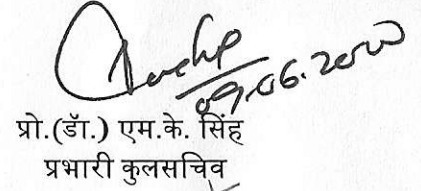 09.06.2020
प्रो.(डॉ.) एम.के. सिंह
प्रभारी कुलसचिव